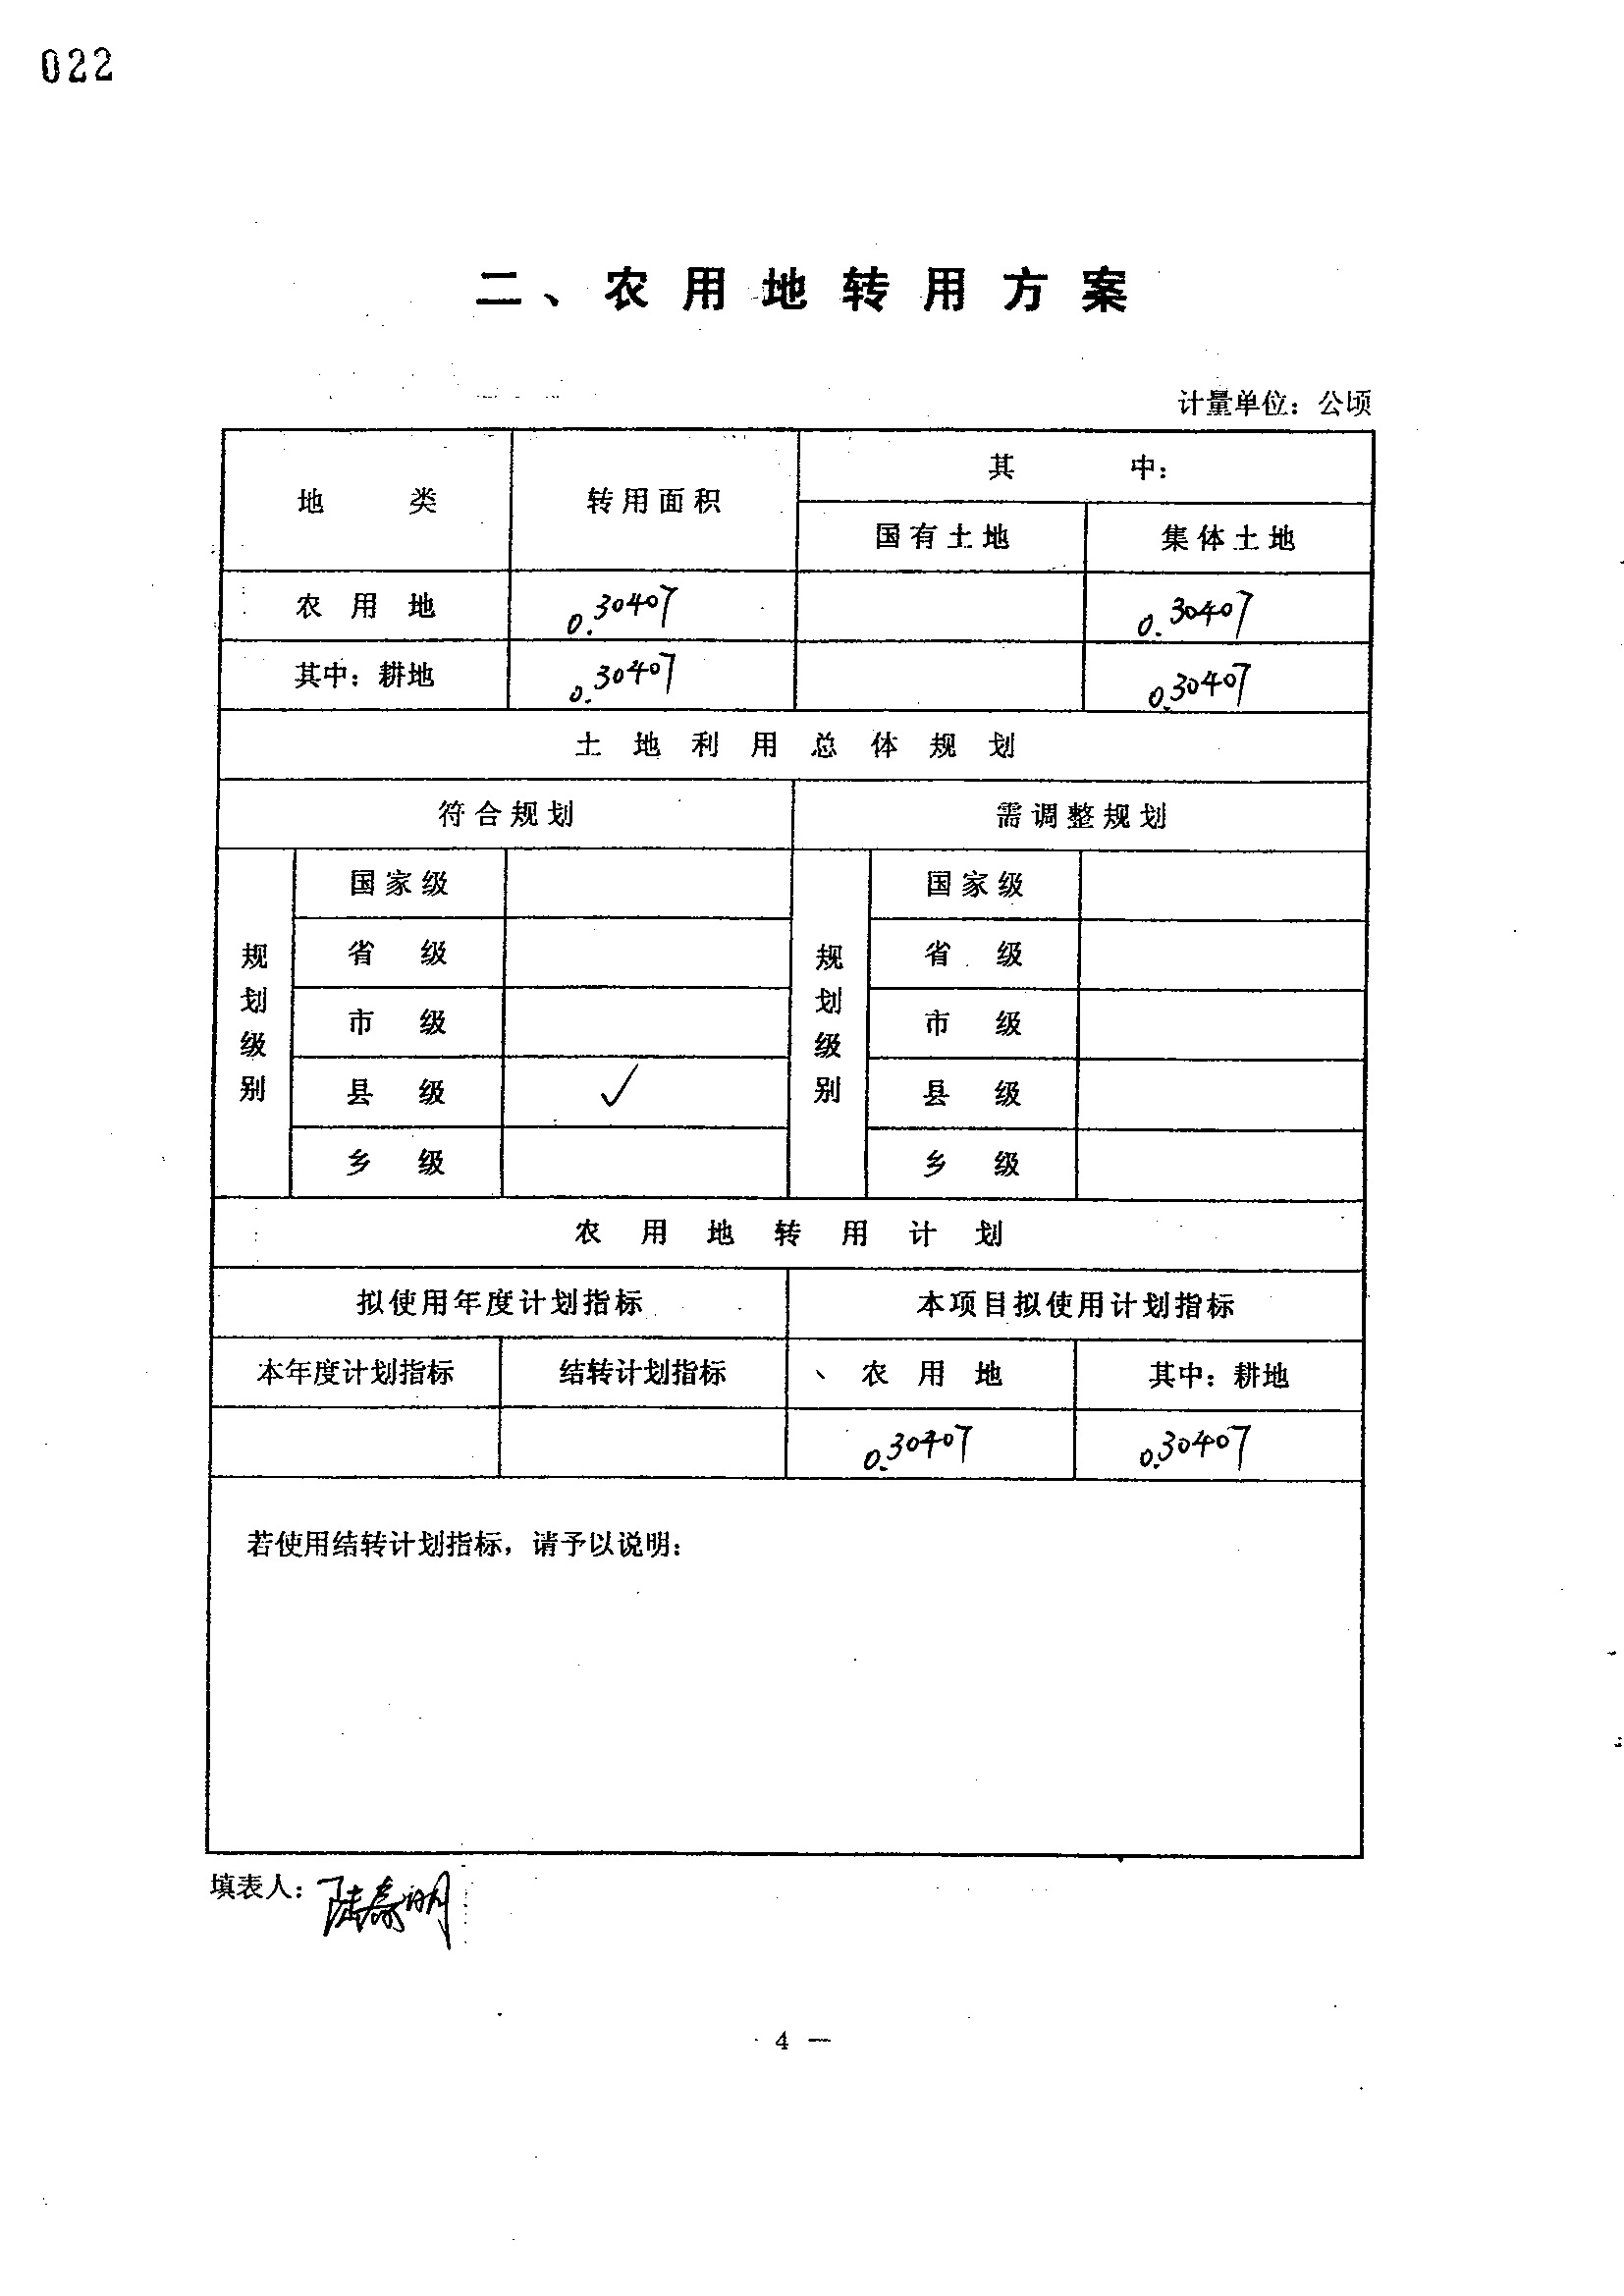 022
二、农用地转用方案
计量单位：公顷
地 类 转用面积 其 中：
国有土地 集体土地
农 用 地 0.30407 0.30407
其中：耕地 0.30407 0.30407
土地利用总体规划
符合规划 需调整规划
规划级别 国家级 规划级别 国家级
省 级 省 级
市 级 市 级
县 级 ✓ 县 级
乡 级 乡 级
农用地转用计划
拟使用年度计划指标 本项目拟使用计划指标
本年度计划指标 结转计划指标 、农 用 地 其中：耕地
0.30407 0.30407
若使用结转计划指标，请予以说明：
填表人：
4 —